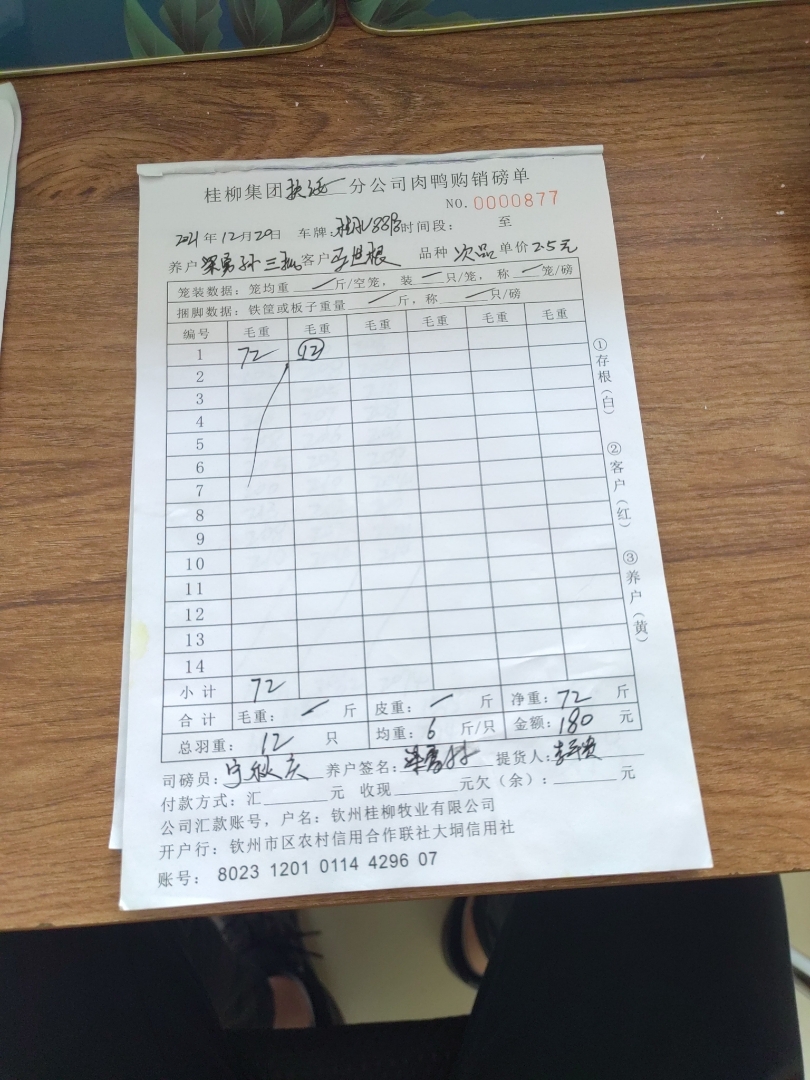 桂柳集团 分公司肉鸭购销磅单
NO. 0000877
2021年12月20日 车牌: 时间段: 至
养户 客户 品种 次品 单价 2.5元
笼装数据: 笼均重 一 斤/空笼, 装 一 只/笼, 称 一 笼/磅
捆脚数据: 铁筐或板子重量 一 斤, 称 一 只/磅
编号 毛重 毛重 毛重 毛重 毛重 毛重
1 72 12
2
3
4
5
6
7
8
9
10
11
12
13
14
小计 72
合计 毛重: 一 斤 皮重: 一 斤 净重: 72 斤
总羽重: 12 只 均重: 6 斤/只 金额: 180 元
司磅员: 养户签名: 提货人:
付款方式: 汇 元 收现 元欠(余): 元
公司汇款账号, 户名: 钦州桂柳牧业有限公司
开户行: 钦州市区农村信用合作联社大垌信用社
账号: 8023 1201 0114 4296 07
①存根(白)
②客户(红)
③养户(黄)